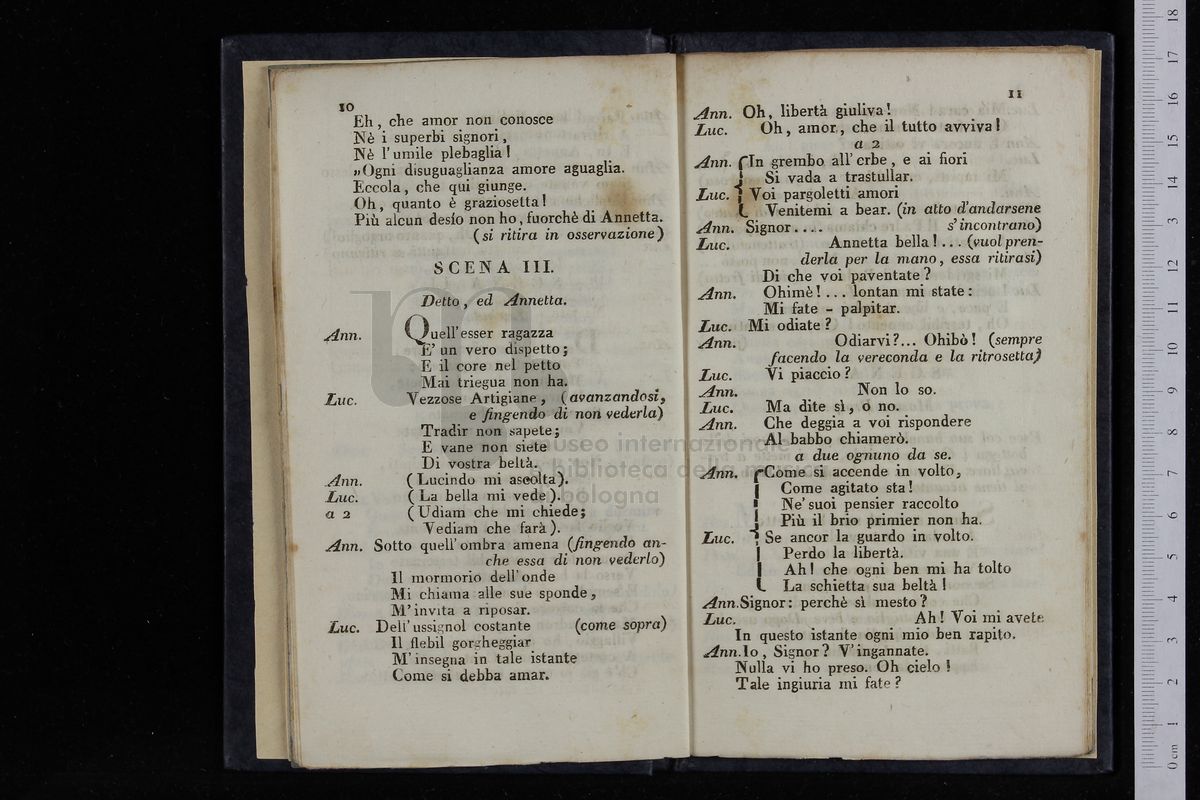 10
Eh, che amor non conosce
Nè i superbi signori,
Nè l'umile plebaglia!
„Ogni disuguaglianza amore aguaglia.
Eccola, che qui giunge.
Oh, quanto è graziosetta!
Più alcun desío non ho, fuorchè di Annetta.
(si ritira in osservazione)
SCENA III.
Detto, ed Annetta.
Ann. Quell'esser ragazza
E' un vero dispetto;
E il core nel petto
Mai triegua non ha.
Luc. Vezzose Artigiane, (avanzandosi,
e fingendo di non vederla)
Tradir non sapete;
E vane non siete
Di vostra beltà.
Ann. (Lucindo mi ascolta).
Luc. (La bella mi vede).
a 2 (Udiam che mi chiede;
Vediam che farà).
Ann. Sotto quell'ombra amena (fingendo an-
che essa di non vederlo)
Il mormorio dell'onde
Mi chiama alle sue sponde,
M'invita a riposar.
Luc. Dell'ussignol costante (come sopra)
Il flebil gorgheggiar
M'insegna in tale istante
Come si debba amar.
11
Ann. Oh, libertà giuliva!
Luc. Oh, amor, che il tutto avviva!
a 2
Ann. In grembo all'erbe, e ai fiori
Si vada a trastullar.
Luc. Voi pargoletti amori
Venitemi a bear. (in atto d'andarsene
Ann. Signor.... s'incontrano)
Luc. Annetta bella!... (vuol pren-
derla per la mano, essa ritirasi)
Di che voi paventate?
Ann. Ohimè!... lontan mi state:
Mi fate - palpitar.
Luc. Mi odiate?
Ann. Odiarvi?... Ohibò! (sempre
facendo la vereconda e la ritrosetta)
Luc. Vi piaccio?
Ann. Non lo so.
Luc. Ma dite sì, o no.
Ann. Che deggia a voi rispondere
Al babbo chiamerò.
a due ognuno da se.
Ann. Come si accende in volto,
Come agitato sta!
Ne' suoi pensier raccolto
Più il brio primier non ha.
Luc. Se ancor la guardo in volto.
Perdo la libertà.
Ah! che ogni ben mi ha tolto
La schietta sua beltà!
Ann. Signor: perchè sì mesto?
Luc. Ah! Voi mi avete
In questo istante ogni mio ben rapito.
Ann. Io, Signor? V'ingannate.
Nulla vi ho preso. Oh cielo!
Tale ingiuria mi fate?
museo internazionale
biblioteca della musica
bologna
0 cm 1 2 3 4 5 6 7 8 9 10 11 12 13 14 15 16 17 18